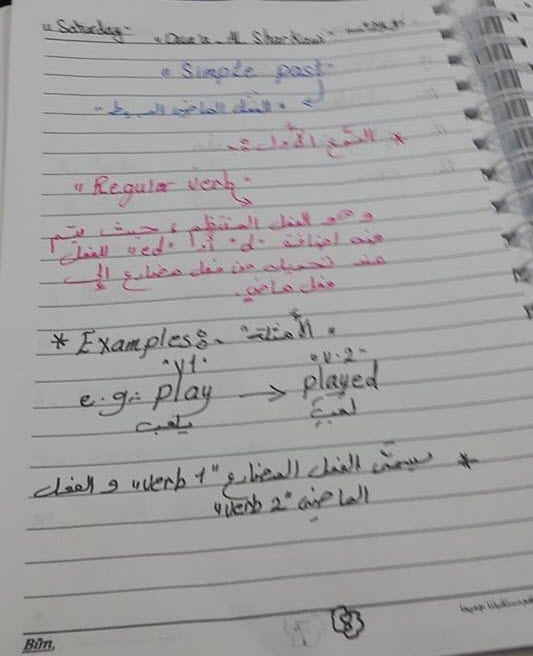 "Saturday"
"Simple past"
"الفعل الماضي البسيط"
"Regular verb"
وهو الفعل المنتظم، حيث يتم
فيه إضافة "d" أو "ed" للفعل
عند تحويله من فعل مضارع إلى
فعل ماضي.
* Examples: "الأمثلة"
"v1" "v.2"
e.g: play → played
يلعب لَعِبَ
* سيسمّى الفعل المضارع "verb 1" و الفعل
الماضي "verb 2"
8
Bün.